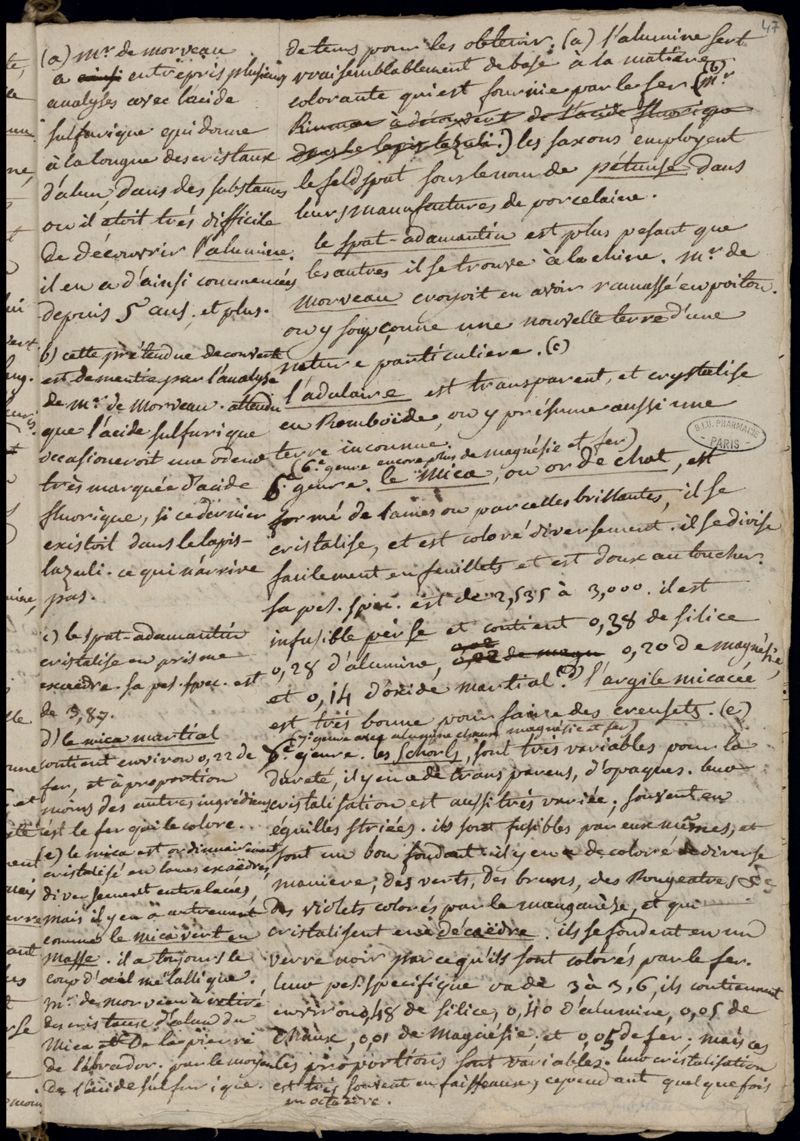 47
(a) mr. de morveau
a entrepris plusieurs
analyses avec l'acide
sulfurique qui donne
à la longue des cristaux
d'alun, dans des substances
ou il etoit trés difficile
de découvrir l'alumine.
il en a d'ainsi commencées
depuis 5 ans, et plus.
b) cette prétendue decouverte
est dementie par l'analyse
de mr. de Morveau. attendu
que l'acide sulfurique
occasioneroit une odeur
très marquée d'acide
fluorique, si ce dernier
existoit dans le lapis-
lazuli. ce qui n'arrive
pas.
c) le spat-adamantin
cristalise en prisme
exaedre. sa pes. spec. est
de 3,87.
d) le mica martial
contient environ 0,22 de
fer, et à proportion
moins des autres ingrédiens
est le fer qui le colore.
(e) le mica est ordinairement
cristalisé en lames exaëdres,
diversement entrelacés,
mais il y en a autrement
comme le mica vert en
masse. il a toujours le
coup d'oeil métallique.
mr. de morveau a retiré
des cristaux d'alun du
Mica et de la pierre
de labrador. par le moyen
de l'acide sulfurique.
de tems pour les obtenir. (a) l'alumine sert
vraisemblablement de base à la matière
colorante qui est fournie par le fer (b) mr
Rinman a découvert de l'acide fluorique
dans le lapis lazuli.) les saxons employent
le feldspat sous le nom de pétunse dans
leurs manufactures de porcelaine.
le spat-adamantin est plus pesant que
les autres il se trouve à la chine. mr. de
morveau croyoit en avoir ramassé en poitou.
on y soupçonne une nouvelle terre d'une
nature particuliere. (c)
l'adulaire est transparent, et crystalise
en Romboïde, on y présume aussi une
terre inconnue.
(6e. genre encore plus de magnésie et fer)
6e. genre. le mica, ou or de chat, est
formé de lames ou parcelles brillantes, il se
cristalise, et est coloré diversement. il se divise
facilement en feuillets et est doux au toucher.
sa pes. spec. est de 2,535 à 3,000. il est
infusible per se et contient 0,38 de silice
0,28 d'alumine, 0,20 de magnésie,
et 0,14 d'oxide martial. (d) l'argile micacée
est très bonne pour faire des creusets. (e)
(7e. genre avec alumine chaux magnésie et fer)
genre. les Schorls, sont très variables pour la
dureté, il y en a de transparens, d'opaques. leur
cristalisation est aussi très variée; souvent en
éguilles striées. ils sont fusibles par eux mêmes, et
sont un bon fondant. il y en a de coloré de diverse
maniere; des verts, des bruns, des Rougeatres
des violets colorés par la manganèse, et qui
cristalisent en décaëdre. ils se fondent en un
verre noir parce qu'ils sont colorés par le fer.
leur pes. specifique va de 3 à 3,6, ils contiennent
environ 0,48 de silice, 0,40 d'alumine, 0,05 de
chaux, 0,01 de Magnésie. et 0,05 de fer; mais ces
proportions sont variables. leur cristalisation
est très souvent en faisseaux, cependant quelquefois
en octaèdre.
B.I.U. PHARMACIE
PARIS